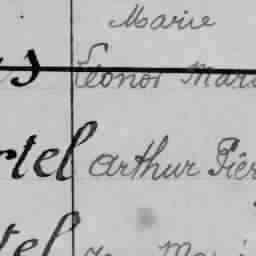 Marie
s Léonor Mari
rtel Arthur Pier
tel